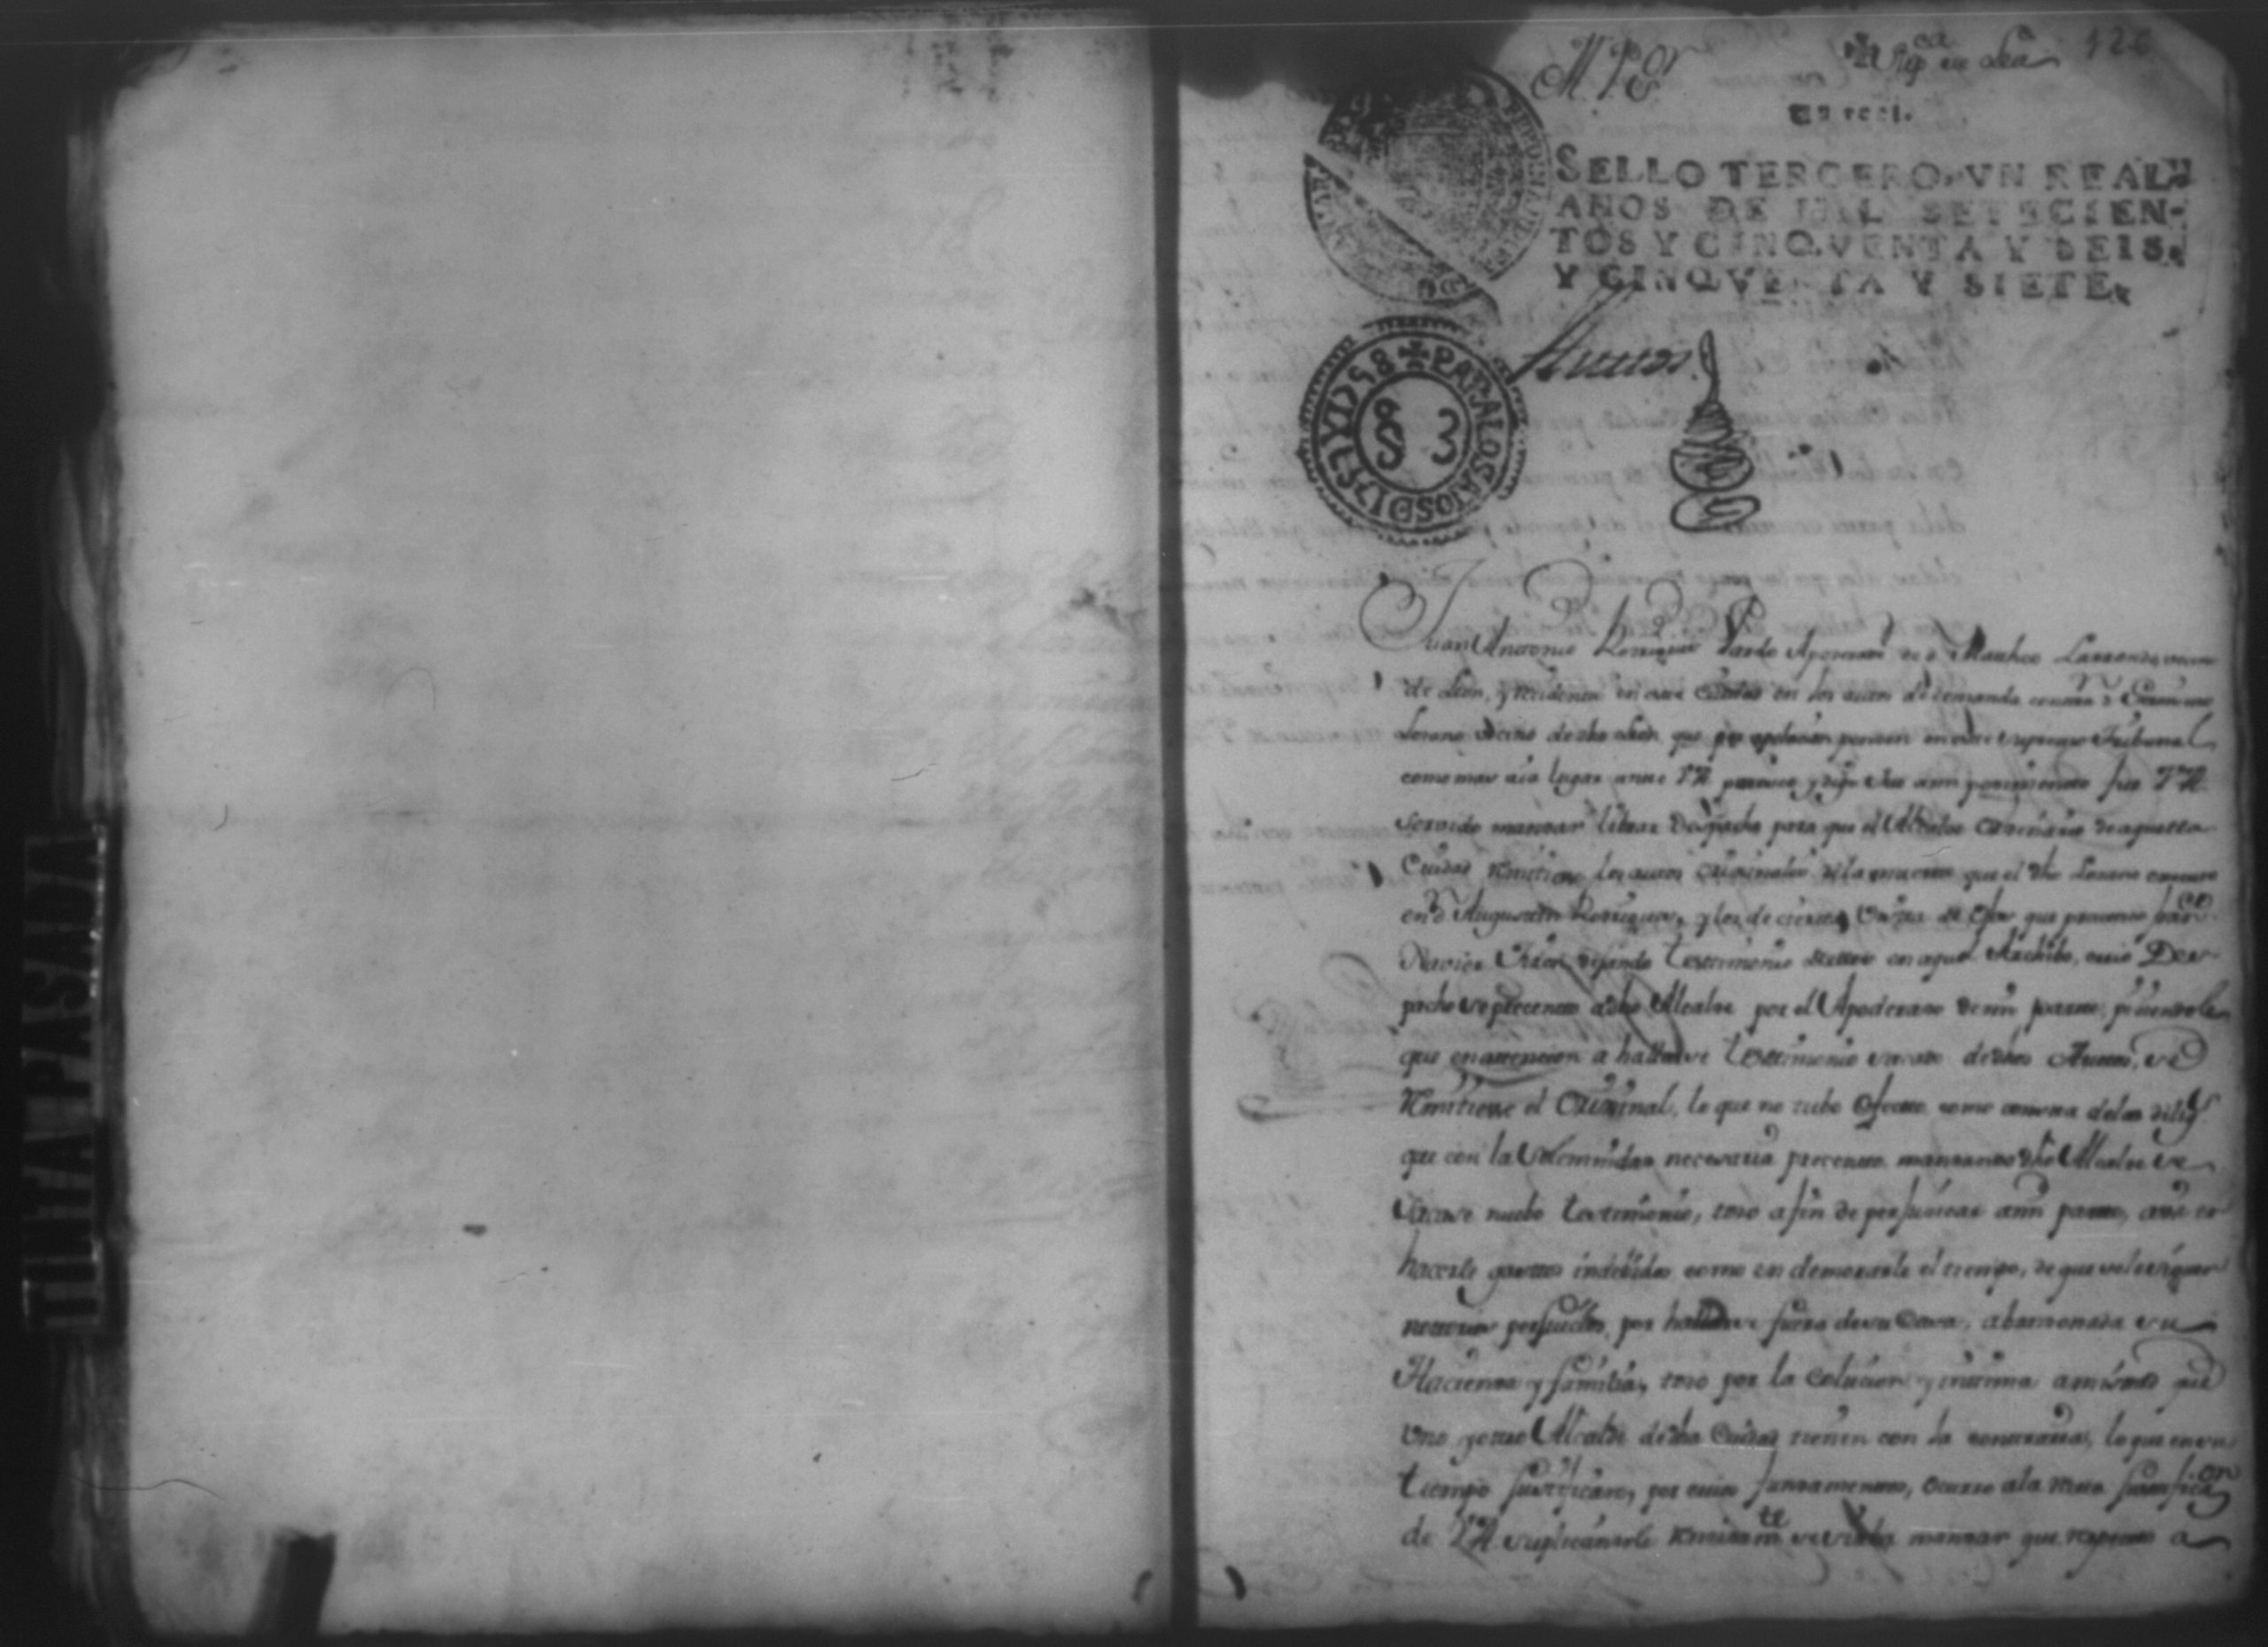 M. P. S.or
126
Un real.
SELLO TERCERO, VN REAL,
AÑOS DE MIL SETECIEN-
TOS Y CINQVENTA Y SEIS,
Y CINQVENTA Y SIETE.
✠PARALOSAÑOSDE1757Y1758
3
Juan Antonio Rodriguez Pardo Apoderado de d.n Matheo Larronda vecino
de Leon, y residente en esta Ciudad en los autos de demanda contra d.n
Lozano vecino de dho Leon que por apelacion penden en este supremo Tribunal
como mas aia lugar ante V.A. paresco y digo que a mi pedimento fue V.A.
servido mandar librar Despacho para que el Alcalde Ordinario de aquella
Ciudad remitiese los autos originales de la muerte que el dho Lozano
en d.n Augustin Rodriguez, y los de cierta que Fran.co
Xavier dejando testimonio de ellos en aquel Archibo, cuio Des-
pacho se presento a dho Alcalde por el Apoderado de mi parte, pidiendole
que en attencion a hallarse testimonio sacado de dhos Autos, se
remitiese el Original, lo que no tubo efecto como consta de las dilig.s
que con la solemnidad necesaria presento mandando dho Alcalde se
sacase nuebo testimonio, todo a fin de perjudicar a mi parte, asi en
hacerle gastos indebidos como en demorarle el tiempo, de que se le siguen
notorios perjuicios, por hallarse fuera de su Casa, abandonada su
Hacienda y familia, todo por la colucion y intima amistad que
uno y otro Alcalde de dha Ciudad tienen con la contraria, lo que en su
tiempo justificare, por cuio fundamento, ocurro a la recta justificaz.on
de V.A. suplicandole rendidam.te se sirba mandar que respecto a